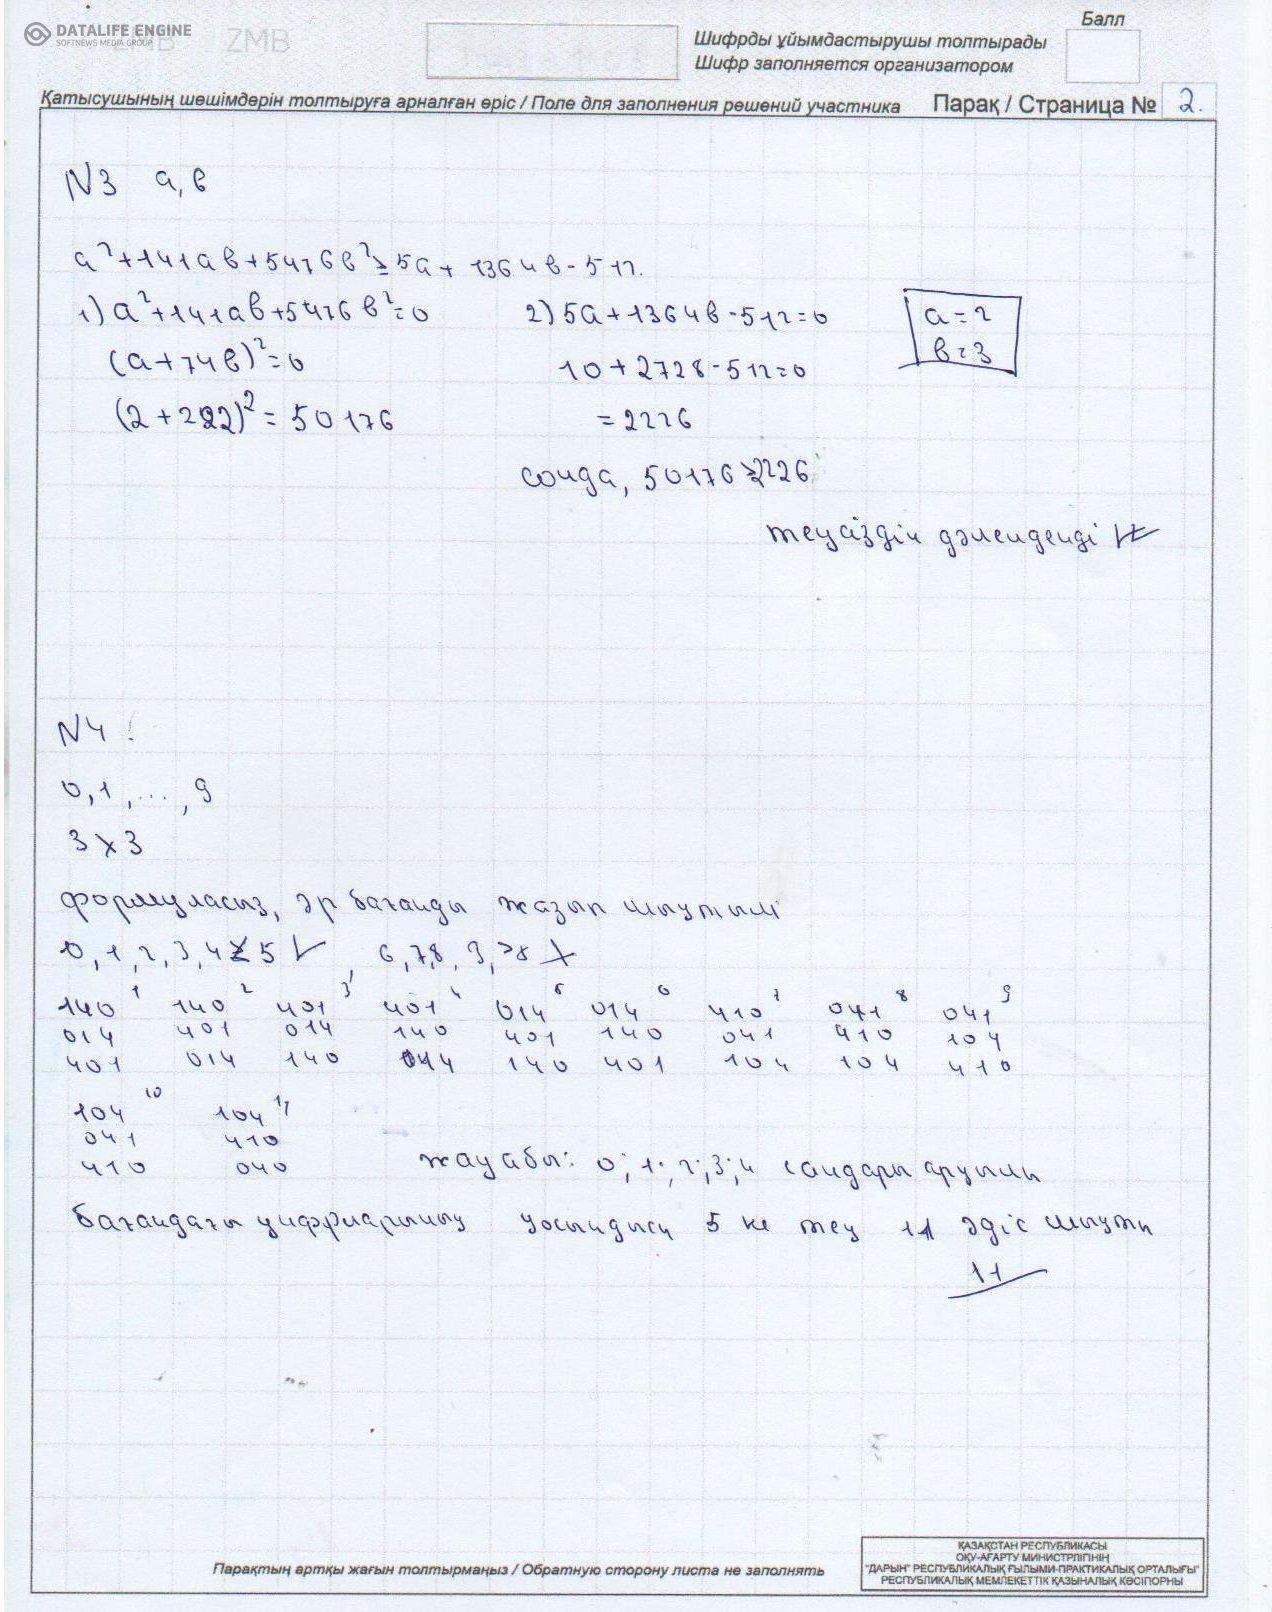 DATALIFE ENGINE
SOFTNEWS MEDIA GROUP
ZMB
Балл
Шифрды ұйымдастырушы толтырады
Шифр заполняется организатором
Қатысушының шешімдерін толтыруға арналған өріс / Поле для заполнения решений участника
Парақ / Страница № 2.
N3 а, в
а²+141ав+5476в²≥5а+1364в-512.
1) а²+141ав+5476в²=0 2) 5а+1364в-512=0 а=2
(а+74в)²=0 10+2728-512=0 в=3
(2+222)²=50176 =2226
сонда, 50176≥2226
теңсіздік дәлелденді
N4
0,1,...,9
3х3
формуласыз, әр бағанды жазып шықтым
0,1,2,3,4 5 ✓, 6,7,8, 9,
140 ¹ 140 ² 401 ³ 401 ⁴ 014 014 ⁶ 410 ⁷ 041 ⁸ 041 ⁹
014 401 014 140 401 140 041 410 104
401 014 140 014 140 401 104 104 410
104 ¹⁰ 104 ¹¹
041 410
410 040
жауабы: 0; 1; 2; 3; 4 сандары арқылы
бағандағы цифрларының қосындысы 5 ке тең 11 әдіс шықты
11
Парақтың артқы жағын толтырмаңыз / Обратную сторону листа не заполнять
ҚАЗАҚСТАН РЕСПУБЛИКАСЫ
ОҚУ-АҒАРТУ МИНИСТРЛІГІНІҢ
"ДАРЫН" РЕСПУБЛИКАЛЫҚ ҒЫЛЫМИ-ПРАКТИКАЛЫҚ ОРТАЛЫҒЫ"
РЕСПУБЛИКАЛЫҚ МЕМЛЕКЕТТІК ҚАЗЫНАЛЫҚ КӘСІПОРНЫ